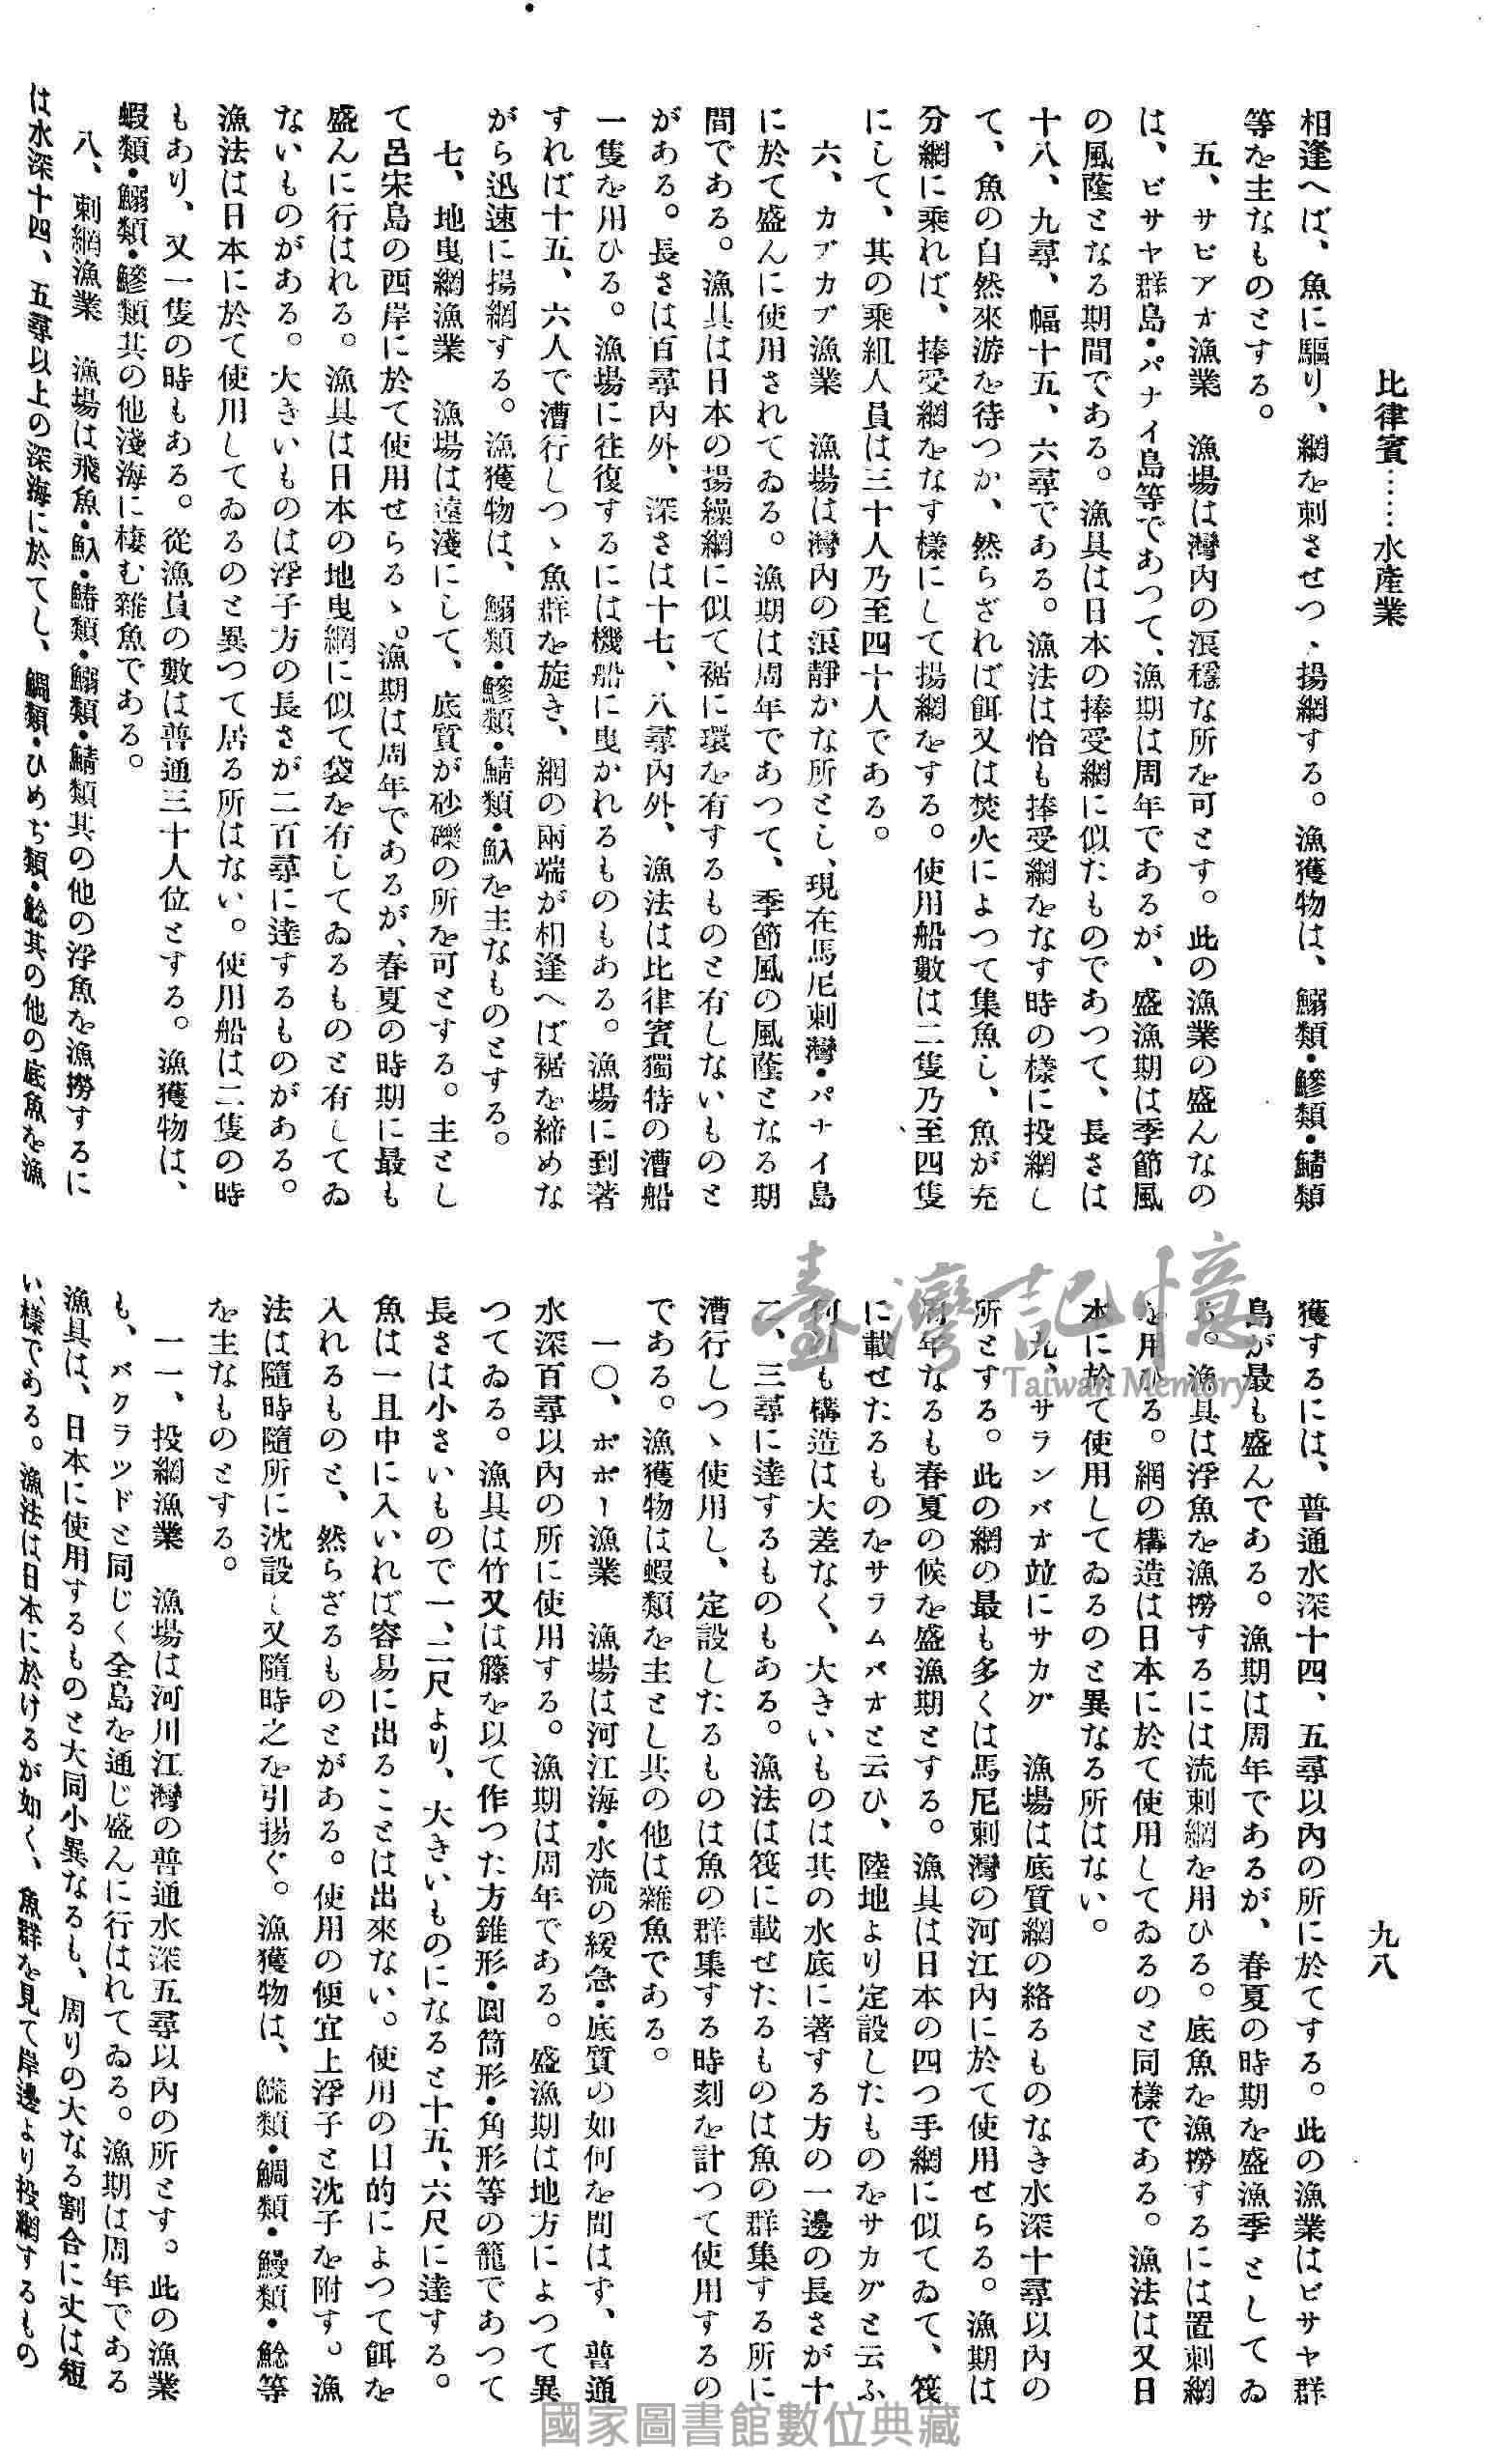 比律賓……水産業
九八
相逢へば、魚に驅り、網を刺させつゝ揚網する。漁獲物は、鰮類・鰺類・鯖類
等を主なものとする。
五、サピアオ漁業　漁場は灣内の浪穩な所を可とす。此の漁業の盛んなの
は、ビサヤ群島・パナイ島等であつて、漁期は周年であるが、盛漁期は季節風
の風蔭となる期間である。漁具は日本の捧受網に似たものであつて、長さは
十八、九尋、幅十五、六尋である。漁法は恰も捧受網をなす時の樣に投網し
て、魚の自然來游を待つか、然らざれば餌又は焚火によつて集魚し、魚が充
分網に乘れば、捧受網をなす樣にして揚網をする。使用船數は二隻乃至四隻
にして、其の乘組人員は三十人乃至四十人である。
六、カブカブ漁業　漁場は灣内の浪靜かな所とし、現在馬尼剌灣・パナイ島
に於て盛んに使用されてゐる。漁期は周年であつて、季節風の風蔭となる期
間である。漁具は日本の揚繰網に似て裾に環を有するものと有しないものと
がある。長さは百尋内外、深さは十七、八尋内外、漁法は比律賓獨特の漕船
一隻を用ひる。漁場に往復するには機船に曳かれるものもある。漁場に到著
すれば十五、六人で漕行しつゝ魚群を旋き、網の兩端が相逢へば裾を締めな
がら迅速に揚網する。漁獲物は、鰮類・鰺類・鯖類・魞を主なものとする。
七、地曳網漁業　漁場は遠淺にして、底質が砂礫の所を可とする。主とし
て呂宋島の西岸に於て使用せらるゝ。漁期は周年であるが、春夏の時期に最も
盛んに行はれる。漁具は日本の地曳網に似て袋を有してゐるものと有してゐ
ないものがある。大きいものは浮子方の長さが二百尋に達するものがある。
漁法は日本に於て使用してゐるのと異つて居る所はない。使用船は二隻の時
もあり、又一隻の時もある。從漁員の數は普通三十人位とする。漁獲物は、
蝦類・鰮類・鰺類其の他淺海に棲む雜魚である。
八、刺網漁業　漁場は飛魚・魞・鰆類・鰮類・鯖類其の他の浮魚を漁撈するに
は水深十四、五尋以上の深海に於てし、鯛類・ひめぢ類・鯰其の他の底魚を漁
獲するには、普通水深十四、五尋以内の所に於てする。此の漁業はビサヤ群
島が最も盛んである。漁期は周年であるが、春夏の時期を盛漁季としてゐ
る。漁具は浮魚を漁撈するには流刺網を用ひる。底魚を漁撈するには置刺網
を用ひる。網の構造は日本に於て使用してゐるのと同樣である。漁法は又日
本に於て使用してゐるのと異なる所はない。
九、サランバオ竝にサカグ　漁場は底質網の絡るものなき水深十尋以内の
所とする。此の網の最も多くは馬尼剌灣の河江内に於て使用せらる。漁期は
周年なるも春夏の候を盛漁期とする。漁具は日本の四つ手網に似てゐて、筏
に載せたるものをサラムバオと云ひ、陸地より定設したものをサカグと云ふ
何れも構造は大差なく、大きいものは其の水底に著する方の一邊の長さが十
二、三尋に達するものもある。漁法は筏に載せたるものは魚の群集する所に
漕行しつゝ使用し、定設したるものは魚の群集する時刻を計つて使用するの
である。漁獲物は蝦類を主とし其の他は雜魚である。
一〇、ボボー漁業　漁場は河江海・水流の緩急・底質の如何を問はず、普通
水深百尋以内の所に使用する。漁期は周年である。盛漁期は地方によつて異
つてゐる。漁具は竹又は籐を以て作つた方錐形・圓筒形・角形等の籠であつて
長さは小さいもので一、二尺より、大きいものになると十五、六尺に達する。
魚は一旦中に入いれば容易に出ることは出來ない。使用の目的によつて餌を
入れるものと、然らざるものとがある。使用の便宜上浮子と沈子を附す。漁
法は隨時隨所に沈設し又隨時之を引揚ぐ。漁獲物は、鯎類・鯛類・鰻類・鯰等
を主なものとする。
一一、投網漁業　漁場は河川江灣の普通水深五尋以内の所とす。此の漁業
も、バクラッドと同じく全島を通じ盛んに行はれてゐる。漁期は周年である
漁具は、日本に使用するものと大同小異なるも、周りの大なる割合に丈は短
い樣である。漁法は日本に於けるが如く、魚群を見て岸邊より投網するもの
臺灣記憶
Taiwan Memory
國家圖書館數位典藏